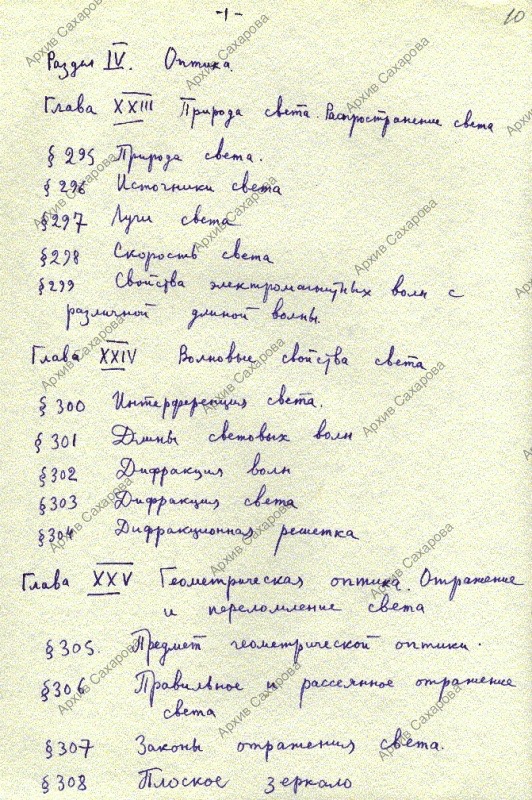 -1-
10
Раздел IV. Оптика.
Глава XXIII Природа света. Распространение света
§ 295 Природа света.
§ 296 Источники света
§ 297 Лучи света
§ 298 Скорость света
§ 299 Свойства электромагнитных волн с
различной длиной волны.
Глава XXIV Волновые свойства света
§ 300 Интерференция света.
§ 301 Длины световых волн
§ 302 Дифракция волн
§ 303 Дифракция света
§ 304 Дифракционная решетка
Глава XXV Геометрическая оптика. Отражение
и переломление света
§ 305. Предмет геометрической оптики.
§ 306 Правильное и рассеянное отражение
света
§ 307 Законы отражения света.
§ 308 Плоское зеркало
Архив Сахарова